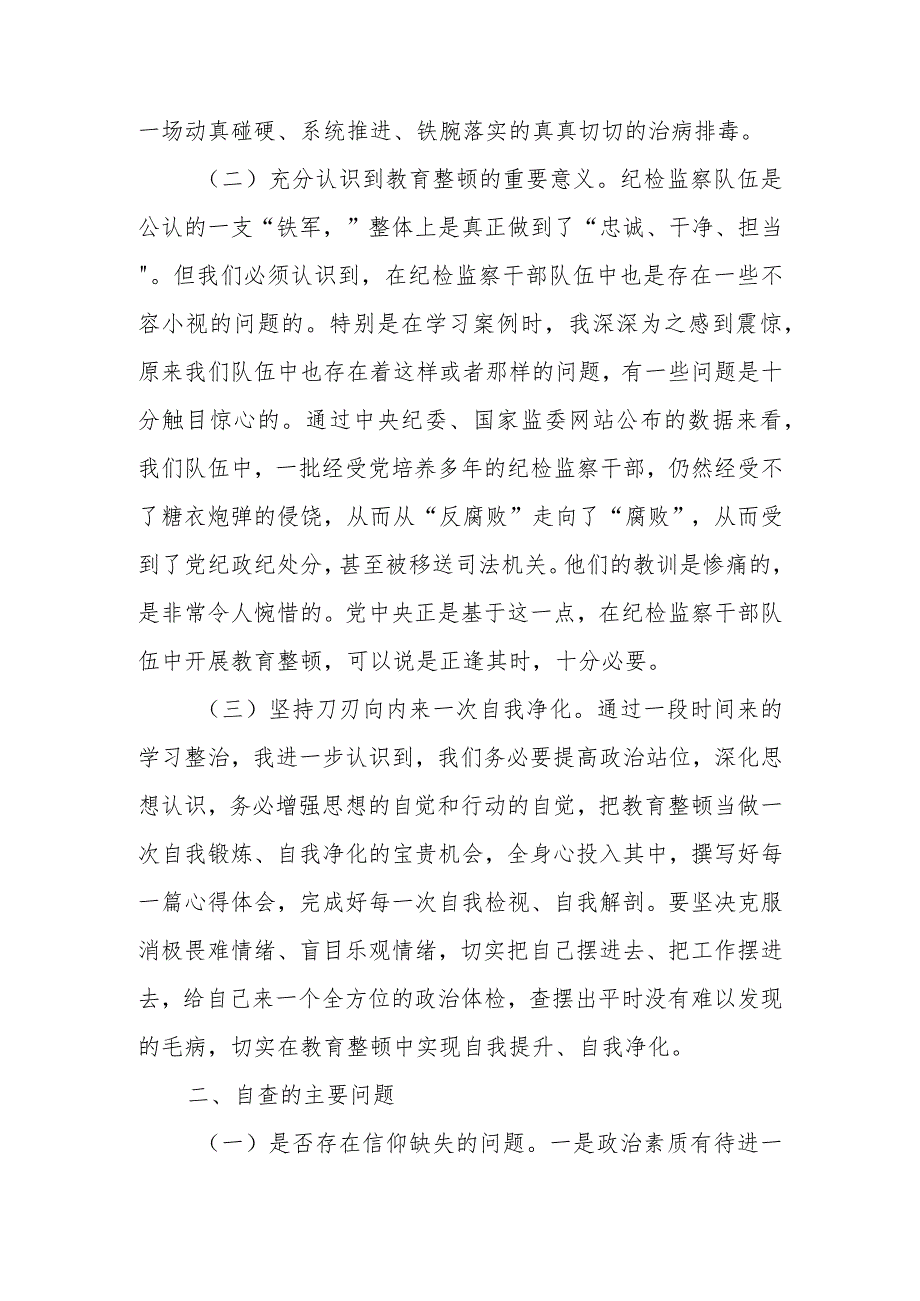 一场动真碰硬、系统推进、铁腕落实的真真切切的治病排毒。
（二）充分认识到教育整顿的重要意义。纪检监察队伍是
公认的一支“铁军，”整体上是真正做到了“忠诚、干净、担当
"。但我们必须认识到，在纪检监察干部队伍中也是存在一些不
容小视的问题的。特别是在学习案例时，我深深为之感到震惊，
原来我们队伍中也存在着这样或者那样的问题，有一些问题是十
分触目惊心的。通过中央纪委、国家监委网站公布的数据来看，
我们队伍中，一批经受党培养多年的纪检监察干部，仍然经受不
了糖衣炮弹的侵饶，从而从“反腐败”走向了“腐败”，从而受
到了党纪政纪处分，甚至被移送司法机关。他们的教训是惨痛的，
是非常令人惋惜的。党中央正是基于这一点，在纪检监察干部队
伍中开展教育整顿，可以说是正逢其时，十分必要。
（三）坚持刀刃向内来一次自我净化。通过一段时间来的
学习整治，我进一步认识到，我们务必要提高政治站位，深化思
想认识，务必增强思想的自觉和行动的自觉，把教育整顿当做一
次自我锻炼、自我净化的宝贵机会，全身心投入其中，撰写好每
一篇心得体会，完成好每一次自我检视、自我解剖。要坚决克服
消极畏难情绪、盲目乐观情绪，切实把自己摆进去、把工作摆进
去，给自己来一个全方位的政治体检，查摆出平时没有难以发现
的毛病，切实在教育整顿中实现自我提升、自我净化。
二、自查的主要问题
（一）是否存在信仰缺失的问题。一是政治素质有待进一